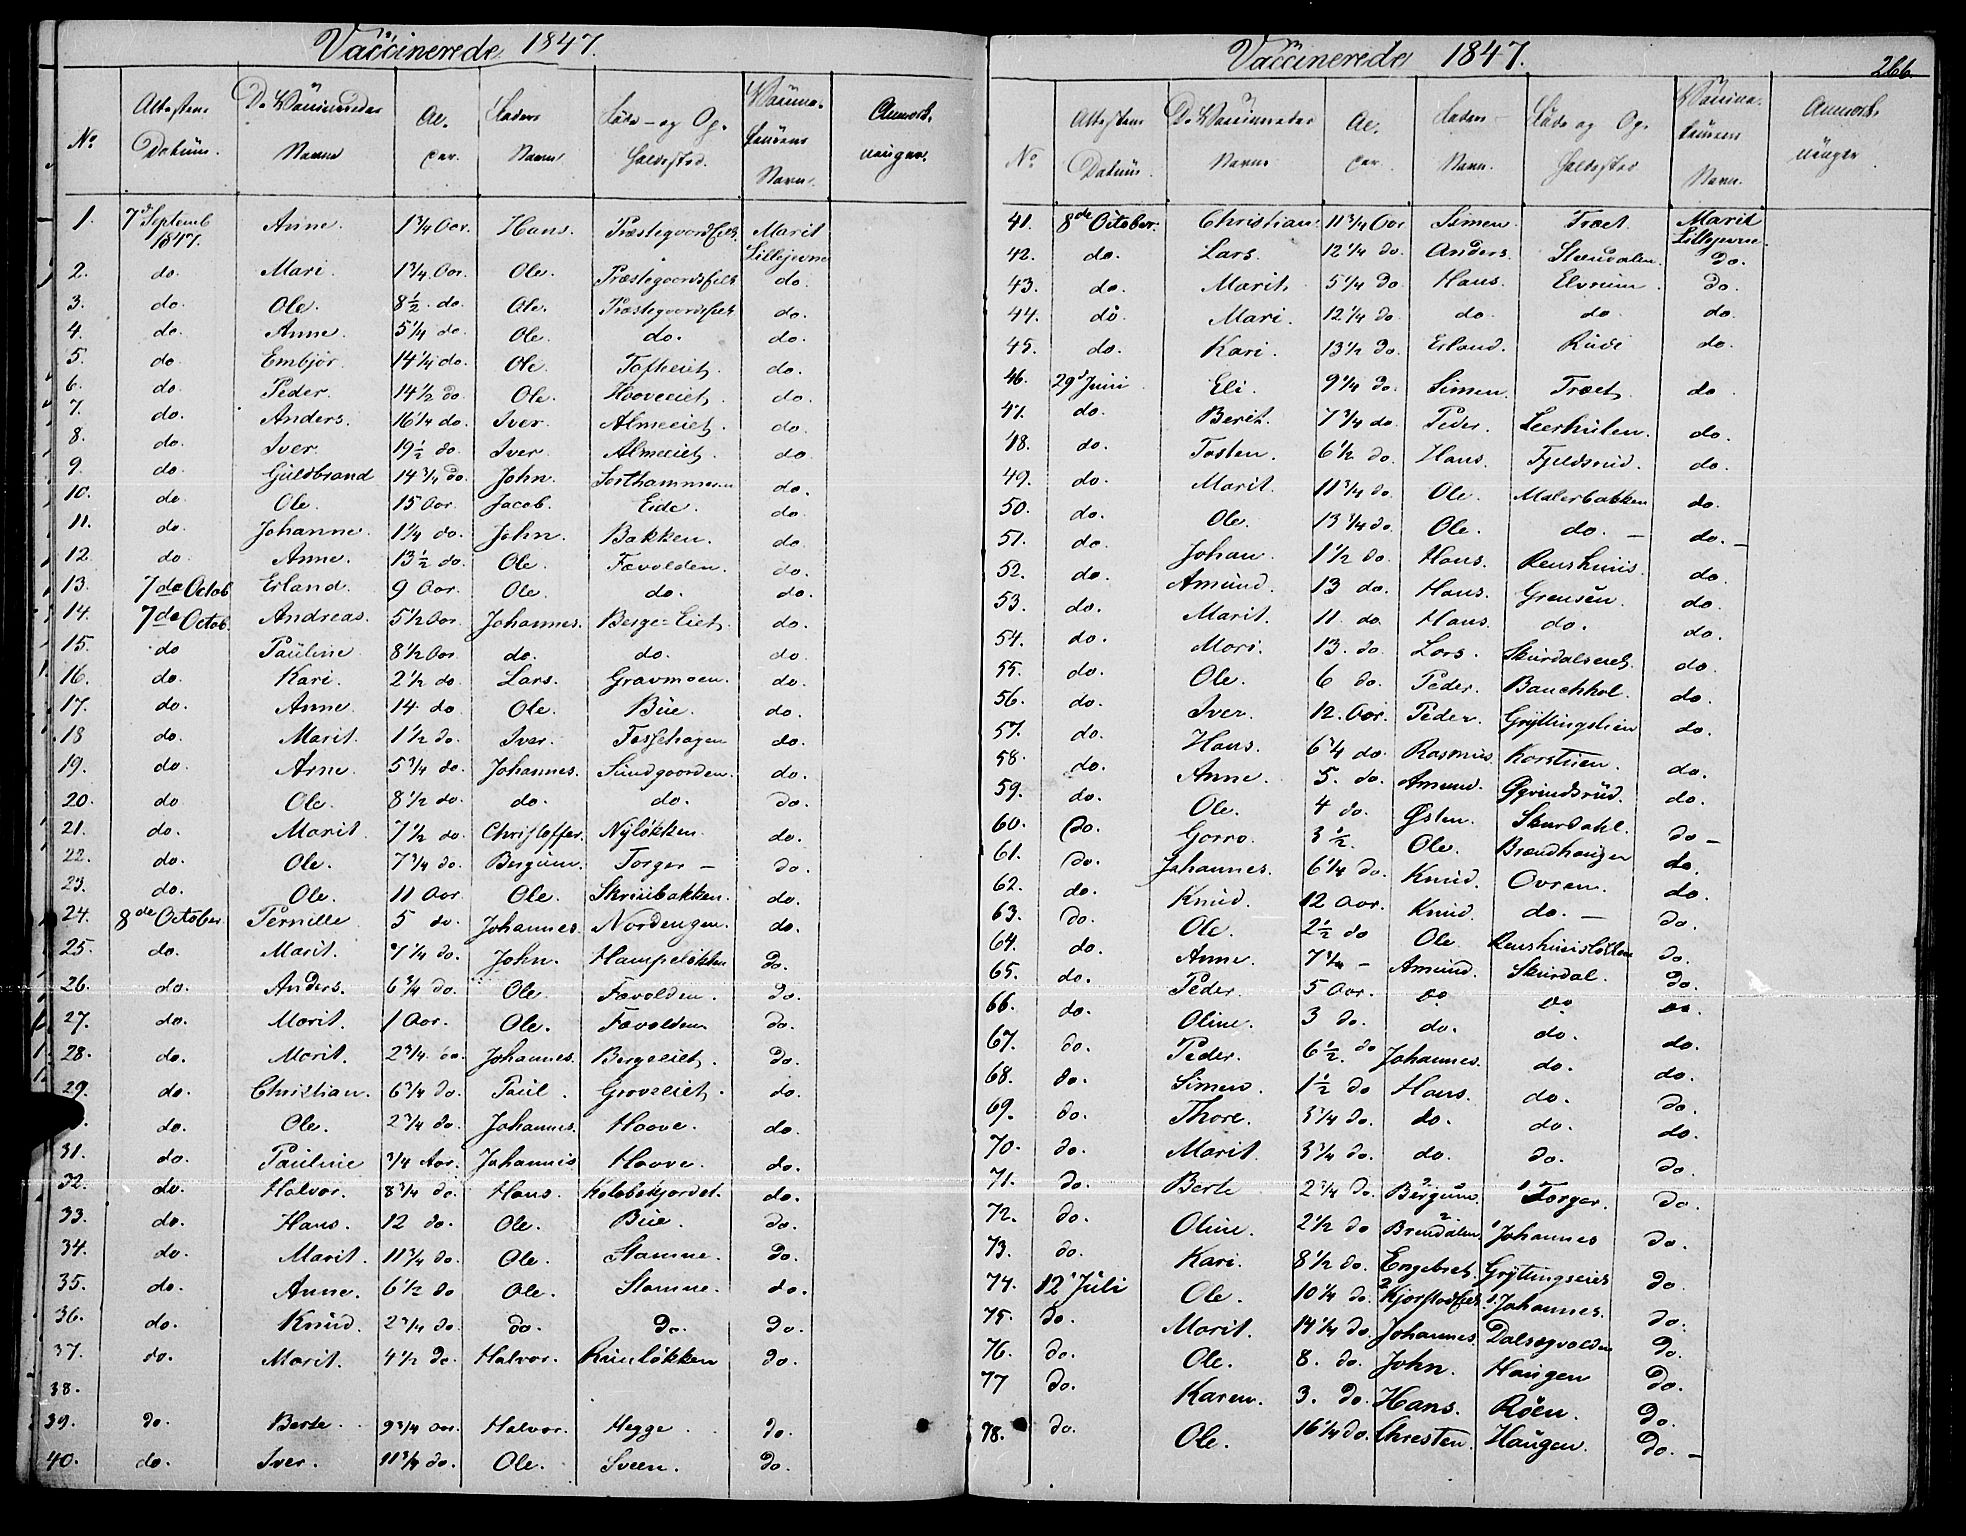 Vaccinerede 1847.
No. Attestens Datum. De Vaccineredes Navne Al- der. Faders Navn. Føde- og Op- holdssted. Vaccina- teurens Navn. Anmærk- ninger.
1. 7de Septemb 1847. Anne. 1 3/4 Aar. Hans. Præstegaardseiet. Marit Lillejevne
2. do. Mari. 1 3/4 Aar. Ole. Præstegaardseiet do.
3. do. Ole. 8 1/2 do. Ole. Præstegaardseiet do.
4. do. Anne. 5 1/4 do. Ole. do. do.
5. do. Embjør. 14 1/4 do. Ole. Tofteeiet. do.
6. do. Peder. 14 1/2 do. Ole. Hooveeiet. do.
7. do. Anders. 16 1/4 do. Iver. Almeeiet. do.
8. do. Iver. 19 1/2 do. Iver. Almeeiet. do.
9. do. Guldbrand 14 3/4 do. John. Sorthammeren do.
10. do. Ole. 15 Aar. Jacob. Eide. do.
11. do. Johanne. 1 1/4 do. John. Bakken. do.
12. do. Anne. 13 1/2 do. Ole. Fævolden. do.
13. 7de Octob Erland. 9 Aar. Ole. do. do.
14. 7de Octob. Andreas. 5 1/2 Aar. Johannes. Berge-Eiet. do.
15. do Pauline 8 1/2 Aar. do. do. do.
16. do. Kari. 2 1/2 do. Lars. Gravmoen. do.
17. do. Anne. 14 do. Ole. Bue. do.
18 do. Marit. 1 1/2 do. Iver. Fossehagen do.
19. do. Arne. 5 3/4 do. Johannes. Sundgaarden. do.
20. do Ole. 8 1/2 do. do. do. do.
21. do. Marit. 7 1/2 do. Christoffer. Nyløkken. do.
22. do. Ole. 7 3/4 do. Bergum. Torger - do.
23. do. Ole. 11 Aar. Ole. Skruibakken. do.
24. 8de October. Pernille 5 do. Johannes. Nordengen. do.
25. do. Marit. 7 1/4 do. John. Hampeløkken do.
26. do. Anders. 6 3/4 do. Ole. Fævolden. do.
27. do. Marit. 1 Aar. Ole. Fævolden do.
28. do. Marit. 2 3/4 do. Johannes. Bergeeiet. do.
29. do. Christian. 6 3/4 do. Paul. Groveeiet. do.
do. Ole. 2 3/4 do. Johannes. Hoove. do.
31. do. Pauline 3/4 Aar. Johannis Hoove. do.
32. do. Halvor. 8 3/4 do. Hans. Kolobekjordet. do.
33. do. Hans. 12 do. Ole. Bue. do.
34. do. Marit. 11 3/4 do. Ole. Stamne. do.
35. do. Anne. 6 1/2 do Ole. Stamne. do.
36. do. Knud. 2 3/4 do. do. do. do.
37. do. Marit. 4 1/2 do. Halvor. Ruuløkken do.
38.
39. do. Berte. 9 3/4 Aar. Halvor. Hegge. do.
40. do. Iver. 11 3/4 do. Ole. Sveen. do.
Vaccinerede 1847.
266
No. Attestens Datum. De Vaccineredes Navne Al- der. Faders Navn. Føde og Op- holdssted Vaccina- teurens Navn. Anmærk- ninger.
41. 8de October. Christian 11 3/4 Aar Simen. Træet. Marit Lillejevne.
42. do. Lars. 12 1/4 do. Anders. Steendalen. do.
43. do. Marit. 5 1/4 do. Hans. Elvrum. do.
44. do Mari. 12 1/4 do. do do do.
45. do. Kari. 13 1/2 do. Erland. Rudi do.
46. 29de Juni Eli. 9 1/4 do. Simen. Træet. do.
47. do. Berit. 7 3/4 do. Peder. Leerhulen. do.
48. do. Tosten. 6 1/2 do. Hans. Fjeldsrud. do.
49. do. Marit. 11 3/4 do. Ole. Malerbakken do.
50. do. Ole. 13 3/4 do. Ole. do. - do. -
51. do. Johan. 1 1/2 do. Hans. Renshuus. do.
52. do. Amund. 13 do. Hans. Grensen. do.
53. do. Marit. 11. do. Hans. do. do.
54. do. Mari. 13. do. Lars. Skurdalseiet. do.
55. do. Ole. 6 do. Peder. Bauchhol. do.
56. do. Iver. 12. Aar. Peder. Gryttingslien do.
57. do. Hans. 6 3/4 do. Rasmus. Korstuen. do.
58. do. Anne. 5. do. Amund. Øyvindsrud. do.
59. do. Ole. 4 do. Østen. Skurdahl. do -
60. do. Gorro. 3 1/2. Ole. Brændhaugen do.
61. do. Johannes. 6 1/4 do. Knud. Ovren. do.
62. do. Knud. 12 Aar. Knud. do. - do.
63. do. Ole. 2 1/2 do Ole. Renshuusløkken do.
64. do. Anne. 7 3/4 - Amund. Skurdal. do.
65. do. Peder. 5 Aar. do do do.
66. do. Oline. 3 do. do. do. do.
67. do. Peder. 6 1/2. do Johannes. do. do.
68. do. Simen. 1 1/2 do Hans. do. do.
69. do. Thore. 3 3/4 do. do. do. do.
70. do. Marit. 3 3/4 do. do. do. do.
71. do. Berte 2 3/4 do. Bergum. Torger. do.
72. do. Oline. 2 1/2 do Brendalen Johannes do.
73. do. Kari. 8 1/2 do. Engebret. Gryttingseiet do.
74. 12te Juli Ole. 10 1/4 do. Kjørstadeiet Johannes. do.
75. do. Marit. 14 1/4 do. Johannes. Dalsegvolden do.
76. do. Ole. 8. do. John. Haugen do.
77 do. Karen. 3. do. Hans. Röen. do.
78. do. Ole. 16 1/4 do. Chresten. Haugen. do. -